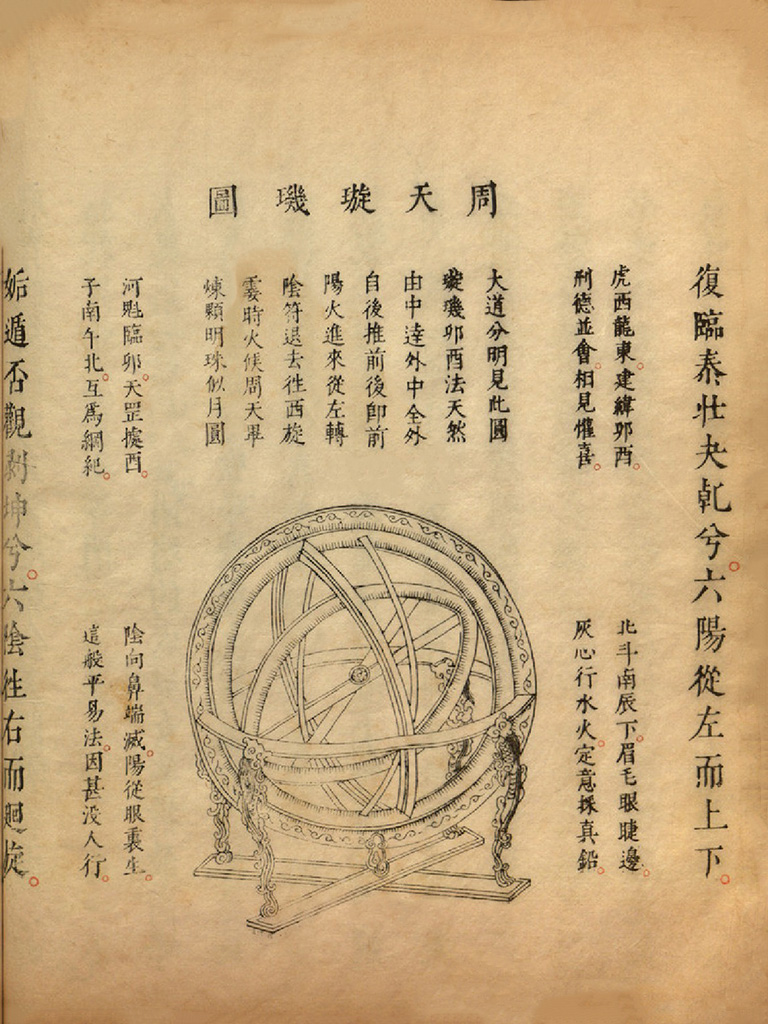 周天璇璣圖
復臨泰壯夬乹兮六陽從左而上下
虎西龍東建緯卯酉
刑德並會相見懽喜
北斗南辰下眉毛眼睫邊
灰心行水火定意採真鉛
大道分明見此圖
璇璣卯酉法天然
由中達外中全外
自後推前後即前
陽火進來從左轉
陰符退去徃西旋
霎時火候周天畢
煉顆明珠似月圓
河魁臨卯天罡據酉
子南午北互爲綱紀
陰向鼻端滅陽從眼裏生
這般平易法因甚没人行
姤遁否觀剥坤兮六陰徃右而廻旋